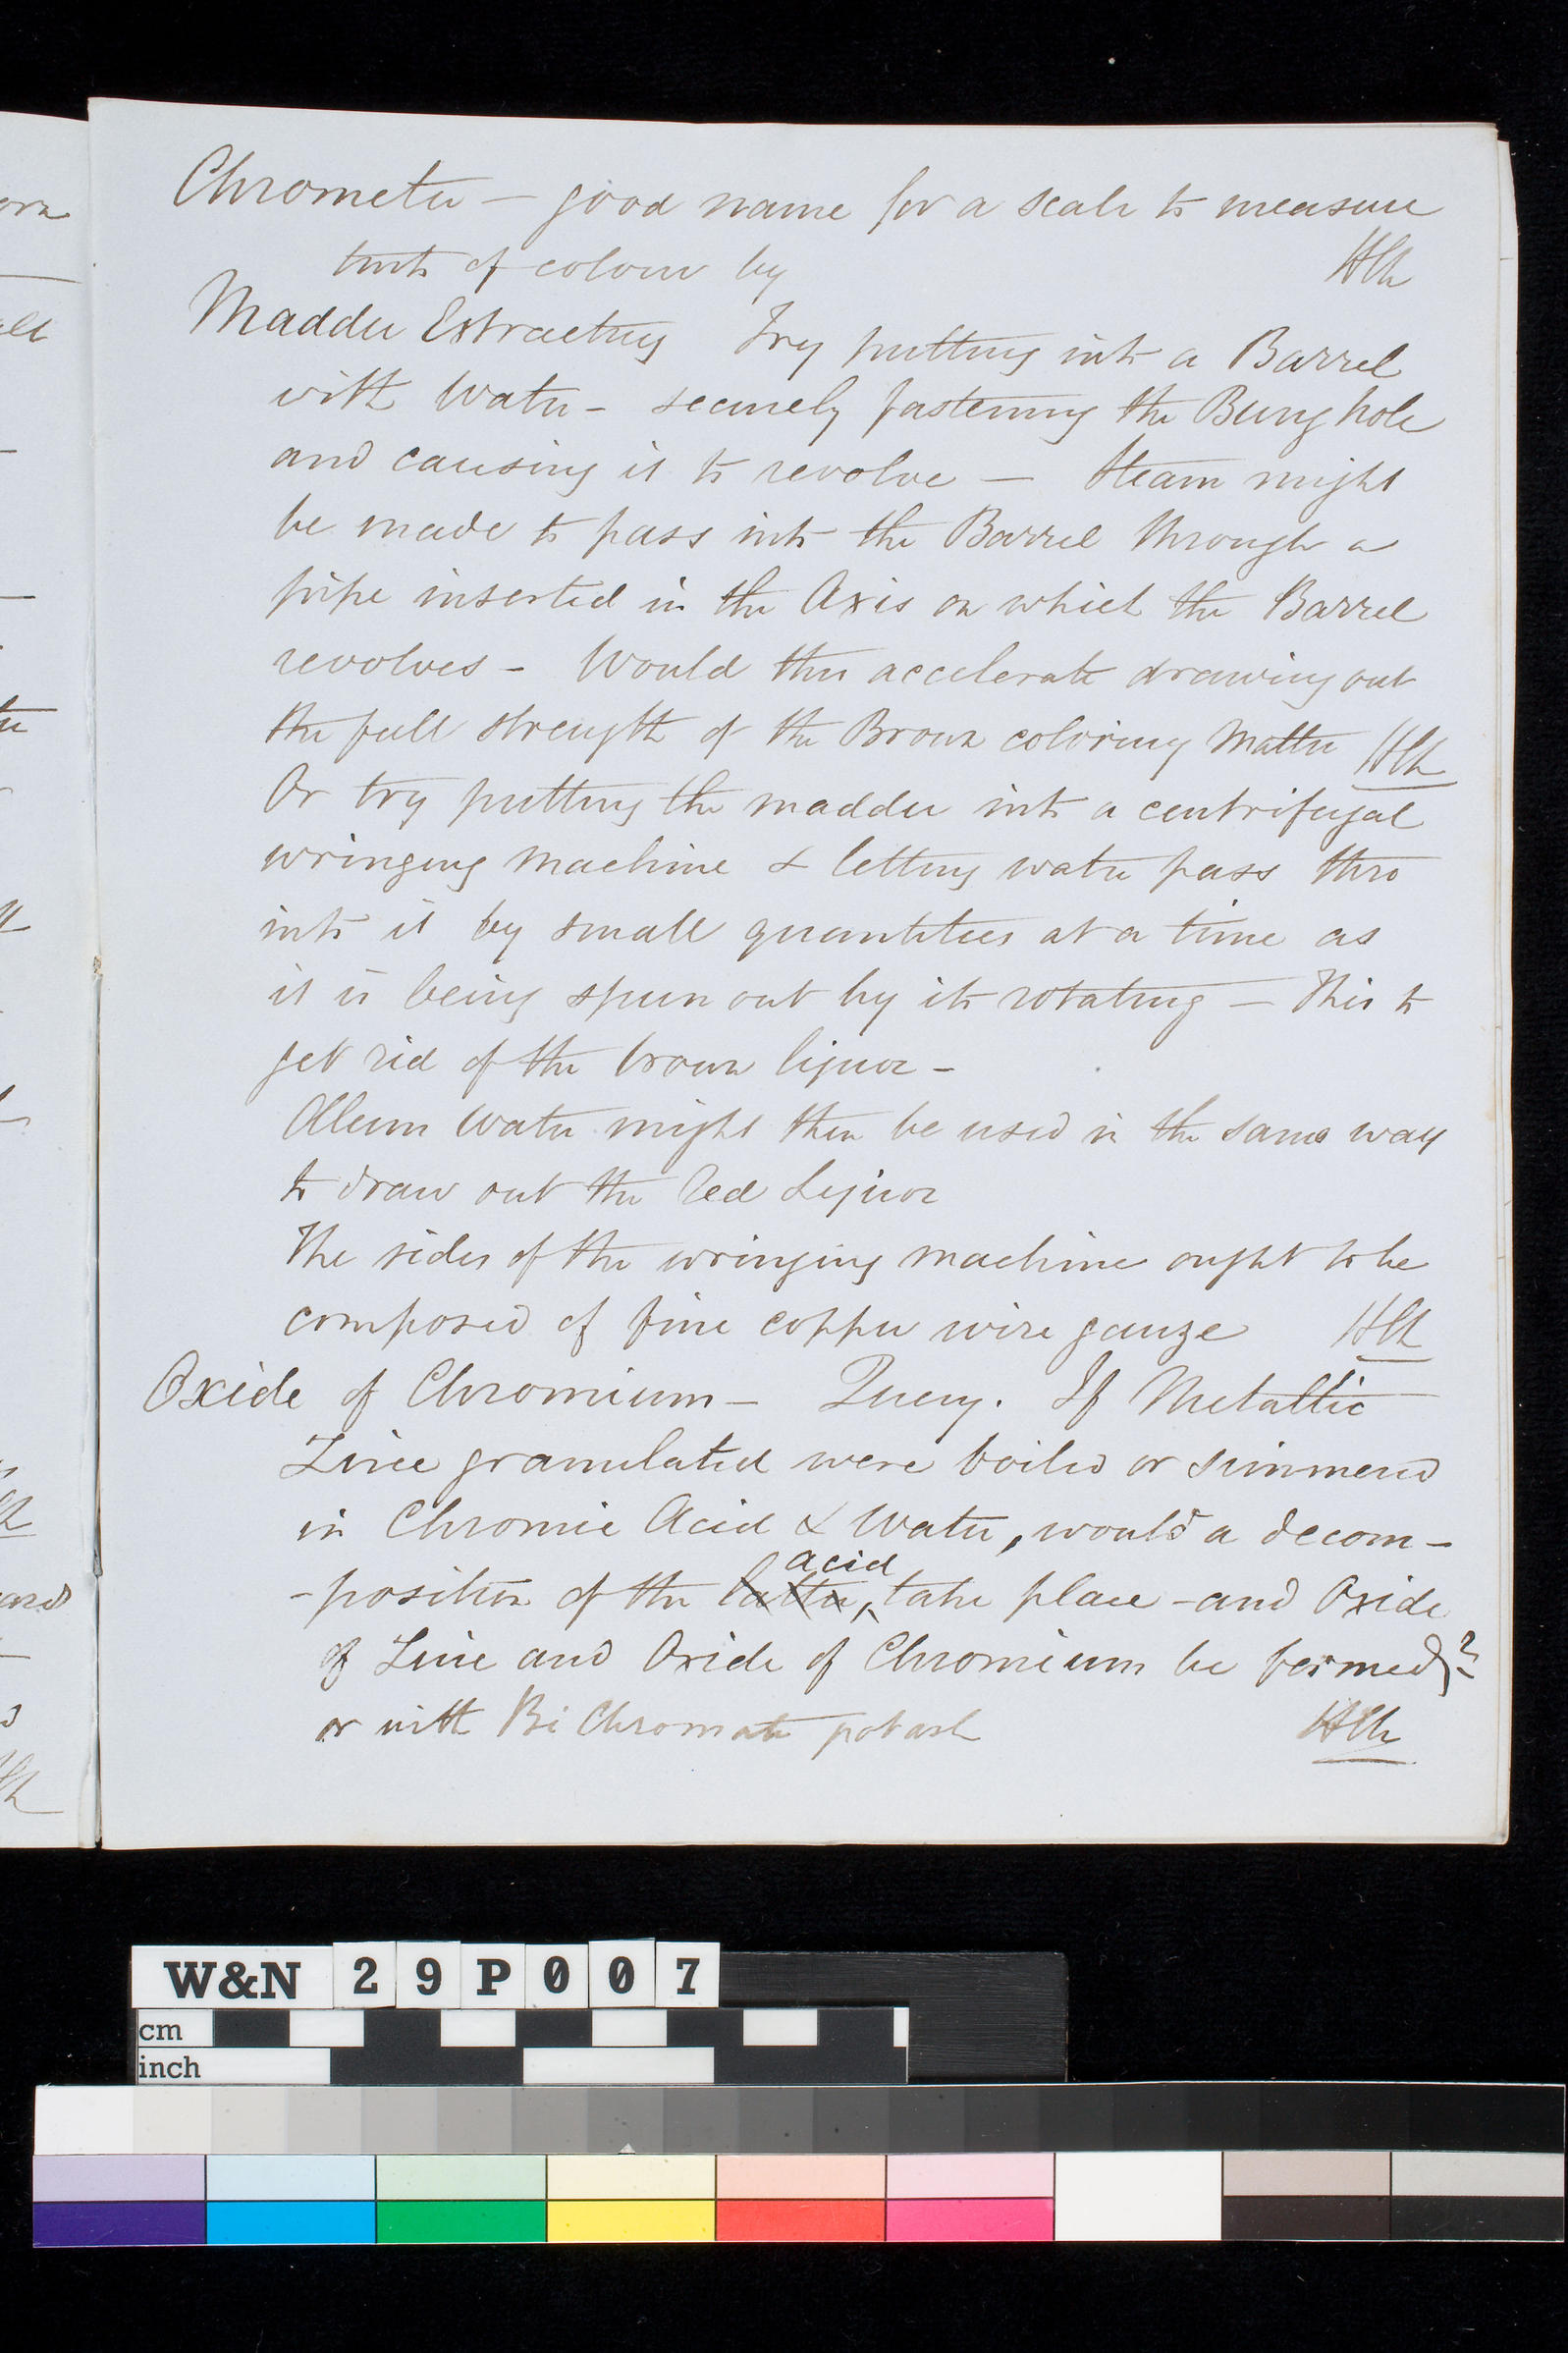 Chrometer – good name for a scale to measure
tints of colour by HCh
Madder Extracting Try putting into a Barrel
with Water – securely fastening the Bung hole
and causing it to revolve – Steam might
be made to pass into the Barrel through a
pipe inserted in the Axis on which the Barrel
revolves – Would this accelerate drawing out
the full strength of the Brown coloring Matter HCh
Or try putting the madder into a centrifugal
wringing machine & letting water pass thro
into it by small quantities at a time as
it is being spun out by its rotating – This to
get rid of the brown liquor –
Alum Water might then be used in the same way
to draw out the Red Liquor
The sides of the wringing machine ought to be
composed of fine copper wire gauze HCh
Oxide of Chromium – Query. If Metallic
Zinc granulated were boiled or simmered
in Chromic Acid & Water, would a decom-
acid
-position of the latter, take place – and Oxide
of Zinc and Oxide of Chromium be formed?
or with Bi Chromate potash HCh
W&N 29P007
cm
inch